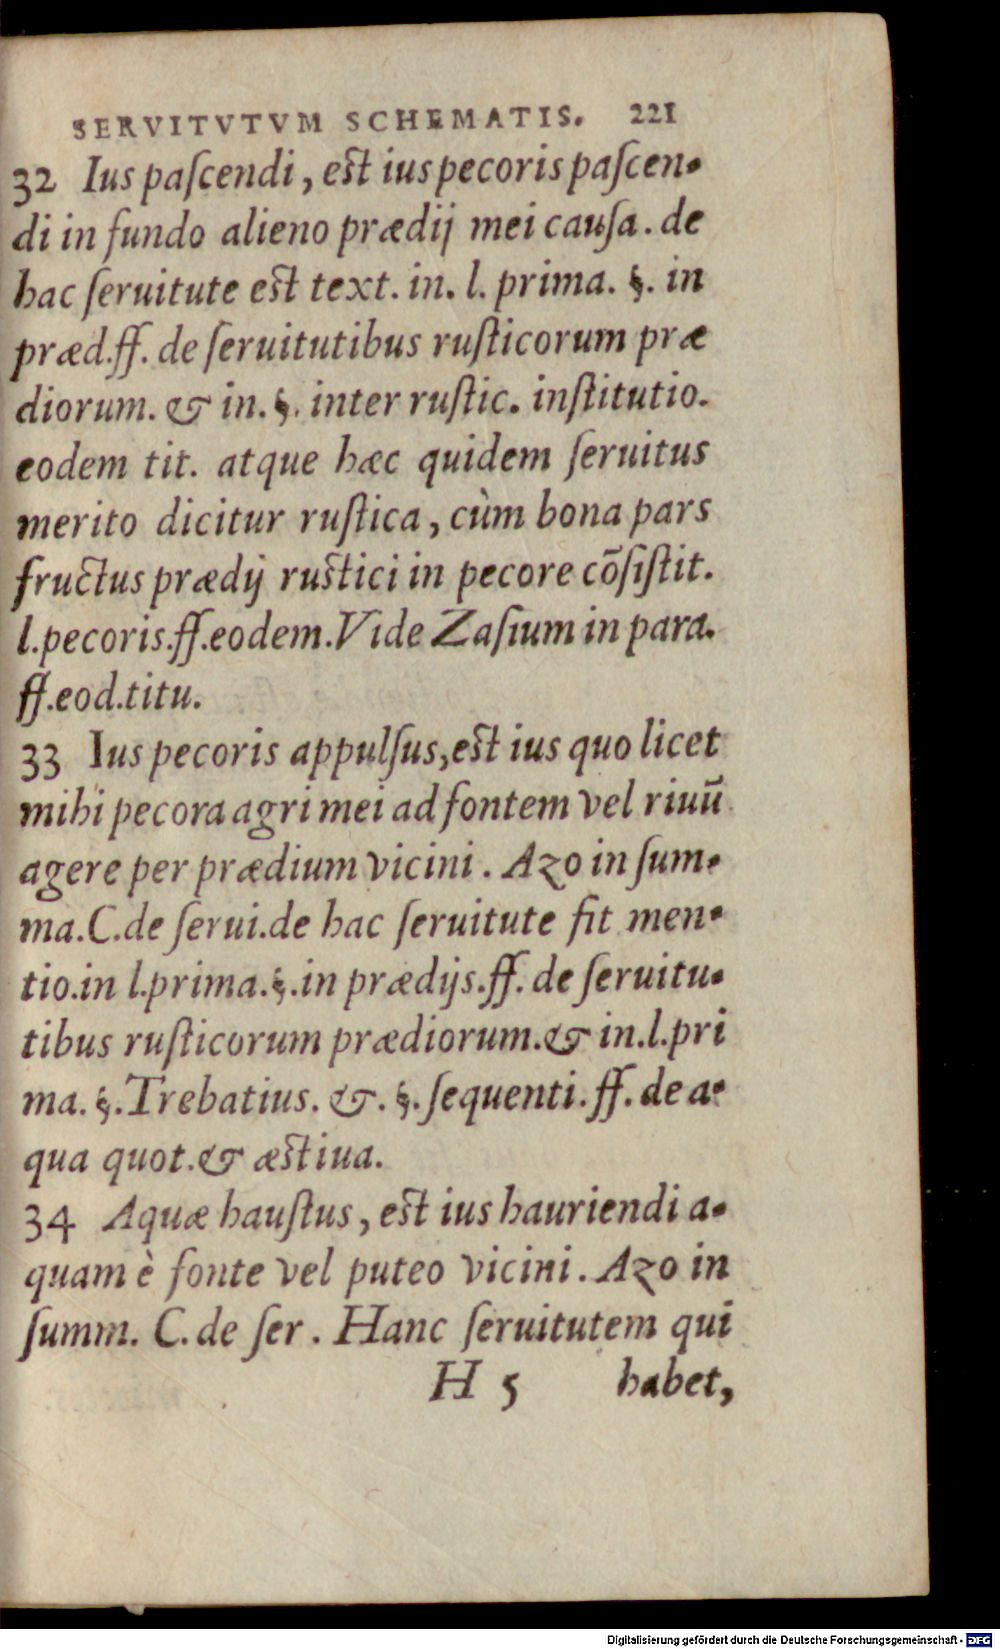 SERVITVTVM SCHEMATIS. 221
32 Ius paſcendi, eſt ius pecoris paſcen-
di in fundo alieno prædij mei cauſa. de
hac ſeruitute eſt text. in. l. prima. §. in
præd.ff. de ſeruitutibus ruſticorum præ
diorum. & in. §. inter ruſtic. inſtitutio.
eodem tit. atque hæc quidem ſeruitus
merito dicitur ruſtica, cùm bona pars
fructus prædij ruſtici in pecore cõſiſtit.
l.pecoris.ff.eodem.Vide Zaſium in para.
ff.eod.titu.
33 Ius pecoris appulſus,eſt ius quo licet
mihi pecora agri mei ad fontem vel riuũ
agere per prædium vicini. Azo in ſum-
ma.C.de ſerui.de hac ſeruitute fit men-
tio.in l.prima.§.in prædijs.ff. de ſeruitu-
tibus ruſticorum prædiorum.& in.l.pri
ma. §.Trebatius. &. §.ſequenti.ff. de a-
qua quot.& æſtiua.
34 Aquæ hauſtus, eſt ius hauriendi a-
quam è fonte vel puteo vicini. Azo in
ſumm. C. de ſer. Hanc ſeruitutem qui
H 5 habet,
Digitalisierung gefördert durch die Deutsche Forschungsgemeinschaft - DFG